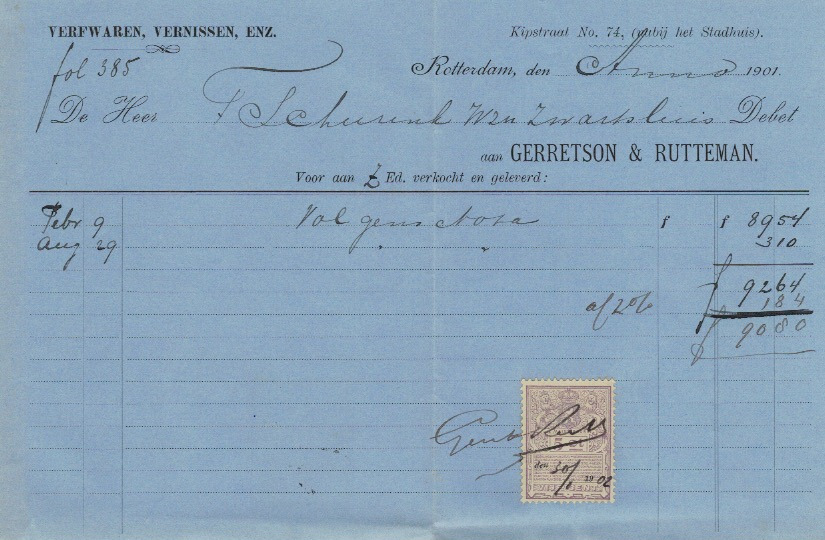 VERFWAREN, VERNISSEN, ENZ.
Kipstraat No. 74, (nabij het Stadhuis).
fol 385
Rotterdam, den Anno 1901.
De Heer F Scheurink Wzn Zwartsluis Debet
aan GERRETSON & RUTTEMAN.
Voor aan Z Ed. verkocht en geleverd:
Febr 9 Volgens Nota f f 8954
Aug 29 " " 310
f 9264
af 2% 184
f 9080
den 30/1 1902